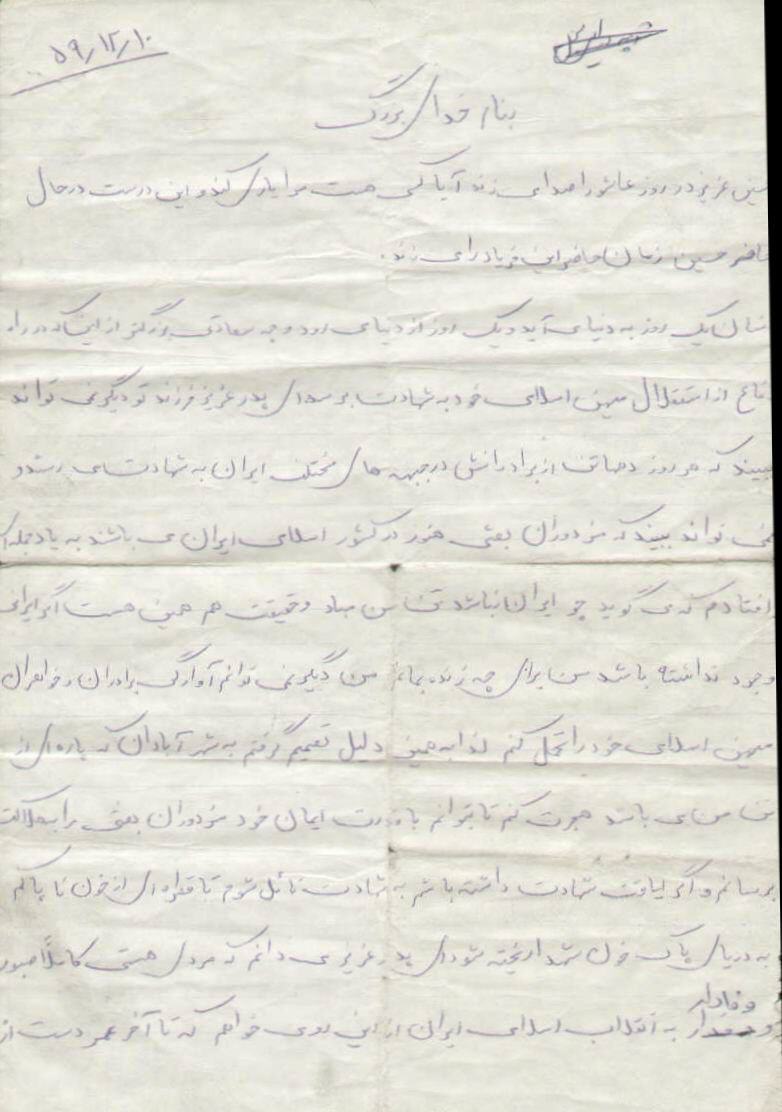 ۵۹/۱۲/۱۰
بنام خدای بزرگ
حسین عزیز در روز عاشورا صدا می زند آیا کسی هست مرا یاری کند و این درست در حال
حاضر حسین زمان ما چنین فریاد را می زند.
انسان یک روز به دنیا می آید و یک روز از دنیا می رود و چه سعادتی بزرگتر از اینکه در راه
دفاع از استقلال میهن اسلامی خود به شهادت برسد ای پدر عزیز فرزند تو دیگر نمی تواند
ببیند که هر روز دهها تن از برادرانش در جبهه های مختلف ایران به شهادت می رسند و
نمی تواند ببیند که مزدوران بعثی هنوز در کشور اسلامی ایران می باشند به یاد جمله ای
افتادم که می گوید چو ایران نباشد تن من مباد و حقیقت هم همین هست اگر ایرانی
وجود نداشته باشد من برای چه زنده بمانم من دیگر نمی توانم آوارگی برادران و خواهران
میهن اسلامی خود را تحمل کنم لذا به همین دلیل تصمیم گرفتم به شهر آبادان که پاره ای از
تن من می باشد هجرت کنم تا بتوانم با قدرت ایمان خود مزدوران بعثی را به هلاکت
برسانم و اگر لیاقت شهادت داشته باشم به شهادت نائل شوم تا قطره ای از خون ناپاکم
به دریای پاک خون شهدا ریخته شود ای پدر عزیز می دانم که مردی هستی کاملاً صبور
وفادار
و به انقلاب اسلامی ایران از این روی می خواهم که تا آخر عمر دست از